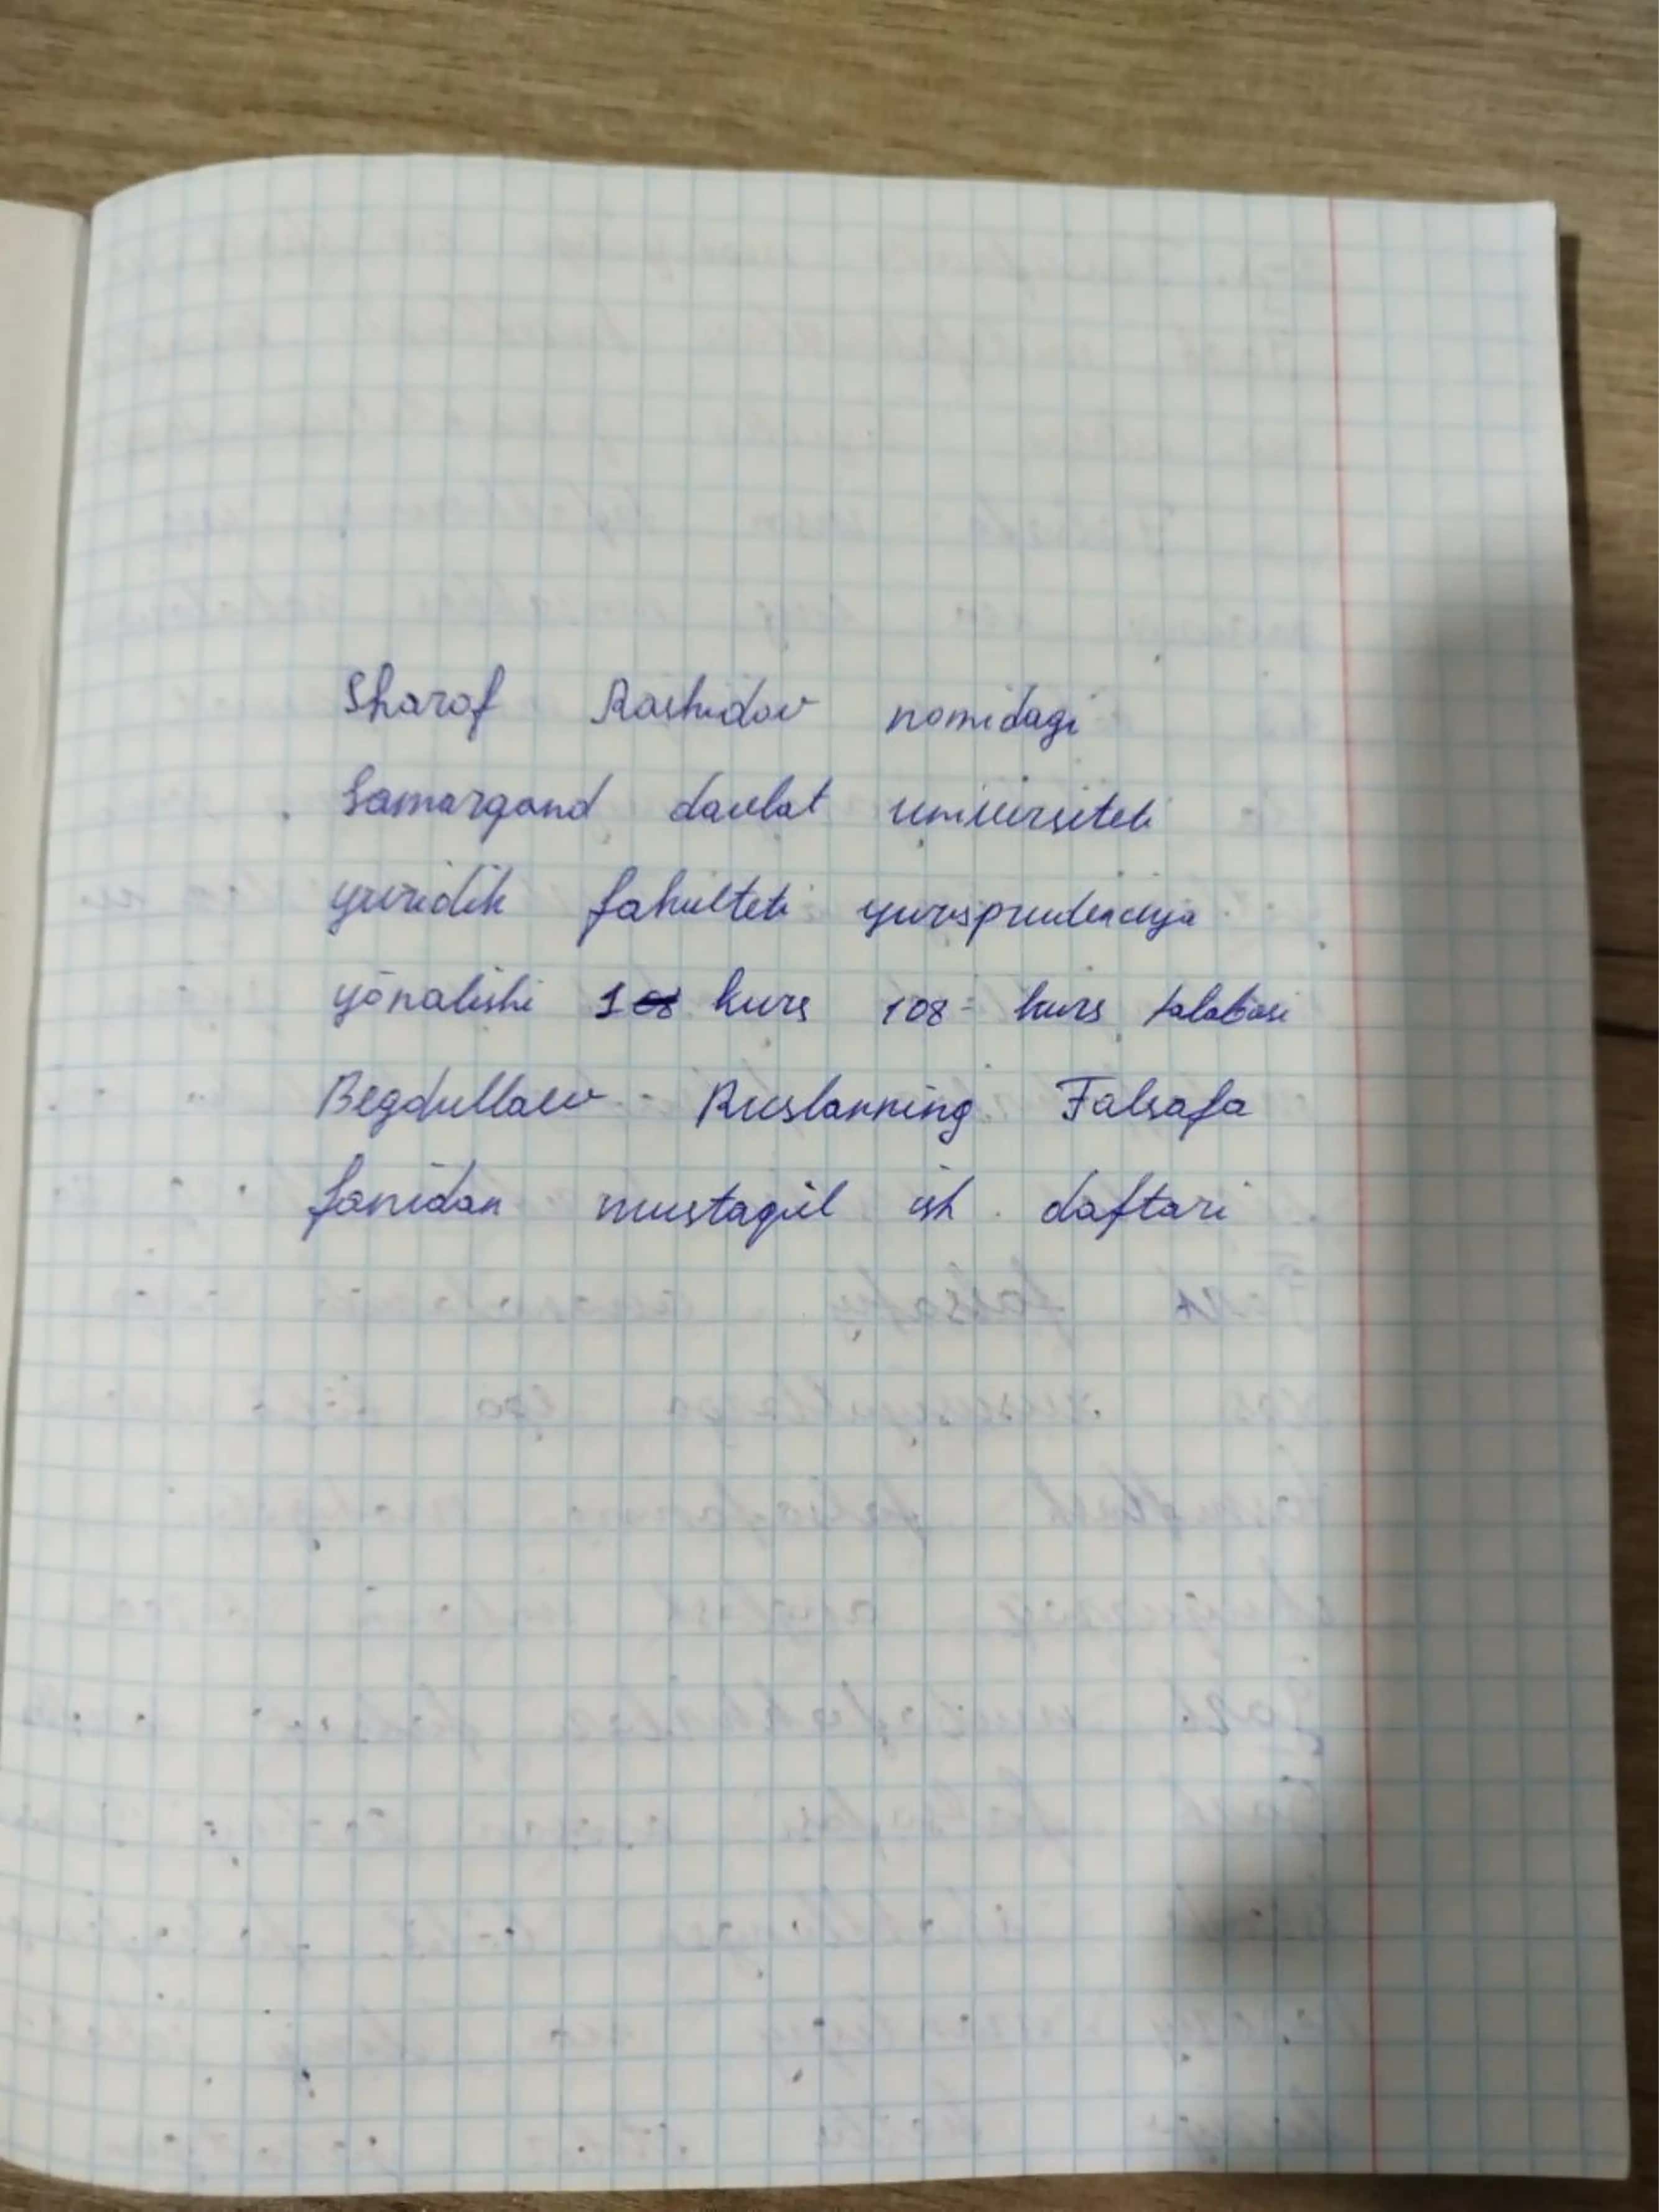 Sharof Rashidov nomidagi
Samarqand davlat universiteti
yuridik fakulteti yursprudensiya
yōnalishi 1 kurs 108- kurs talabasi
Begdullaev Ruslanning Falsafa
fanidan mustaqil ish daftari